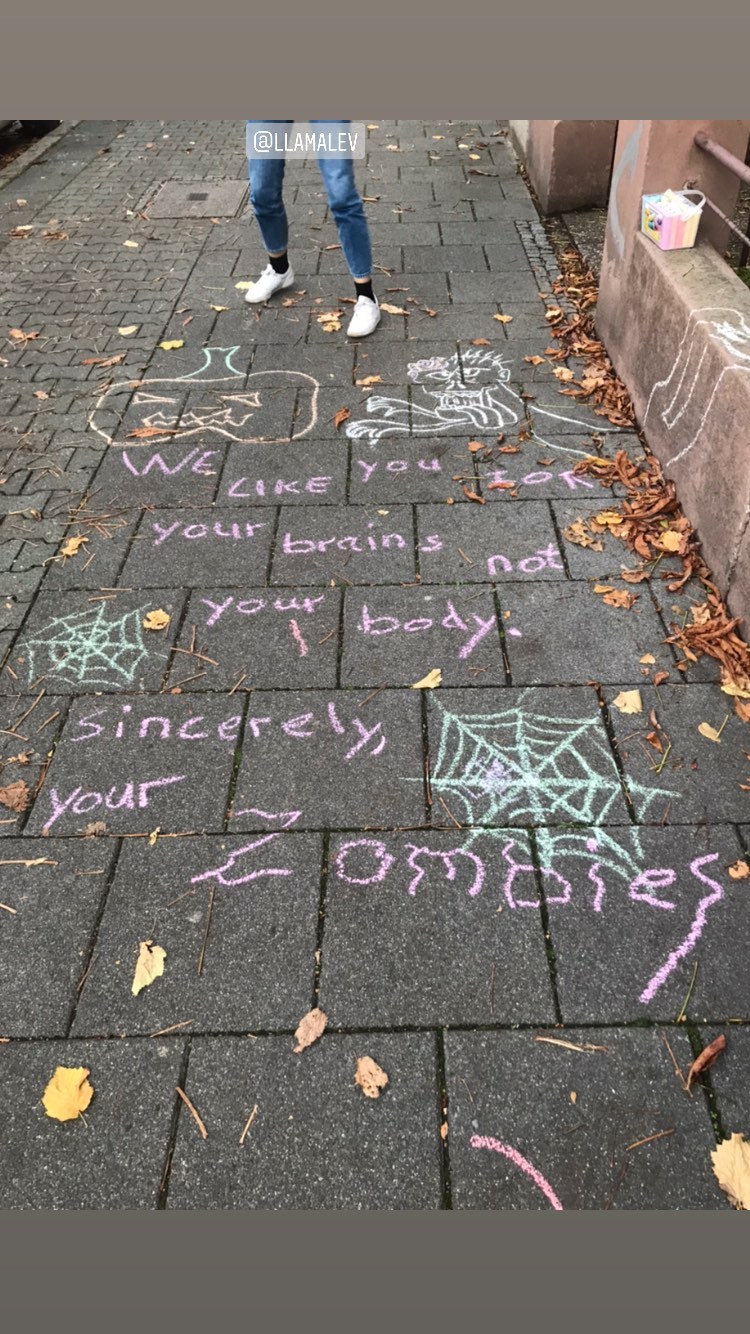 @LLAMALEV
WE LIKE YOU FOR
your brains not
your body.
sincerely,
your
Zombies